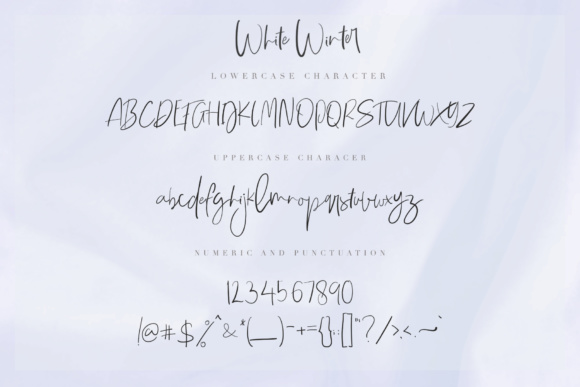 White Winter
LOWERCASE CHARACTER
ABCDEFGHIJKLMNOPQRSTUVWXYZ
UPPERCASE CHARACER
abcdefghijklmnopqrstuvwxyz
NUMERIC AND PUNCTUATION
1234567890
!@#$%^&*(__)-+={}:;[]"'?/>.<,~`